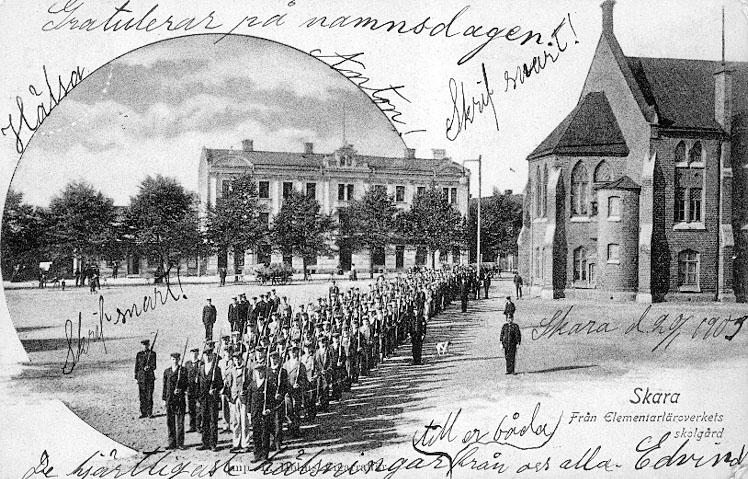 Gratulerar på namnsdagen.
Skrif snart!
Hälsa Anton!
Skrif snart!
Skara d. 29/ 1903
Skara
Från Elementarläroverkets
skolgård
till er båda
De hjärtligaste hälsningar från oss alla. Edvind